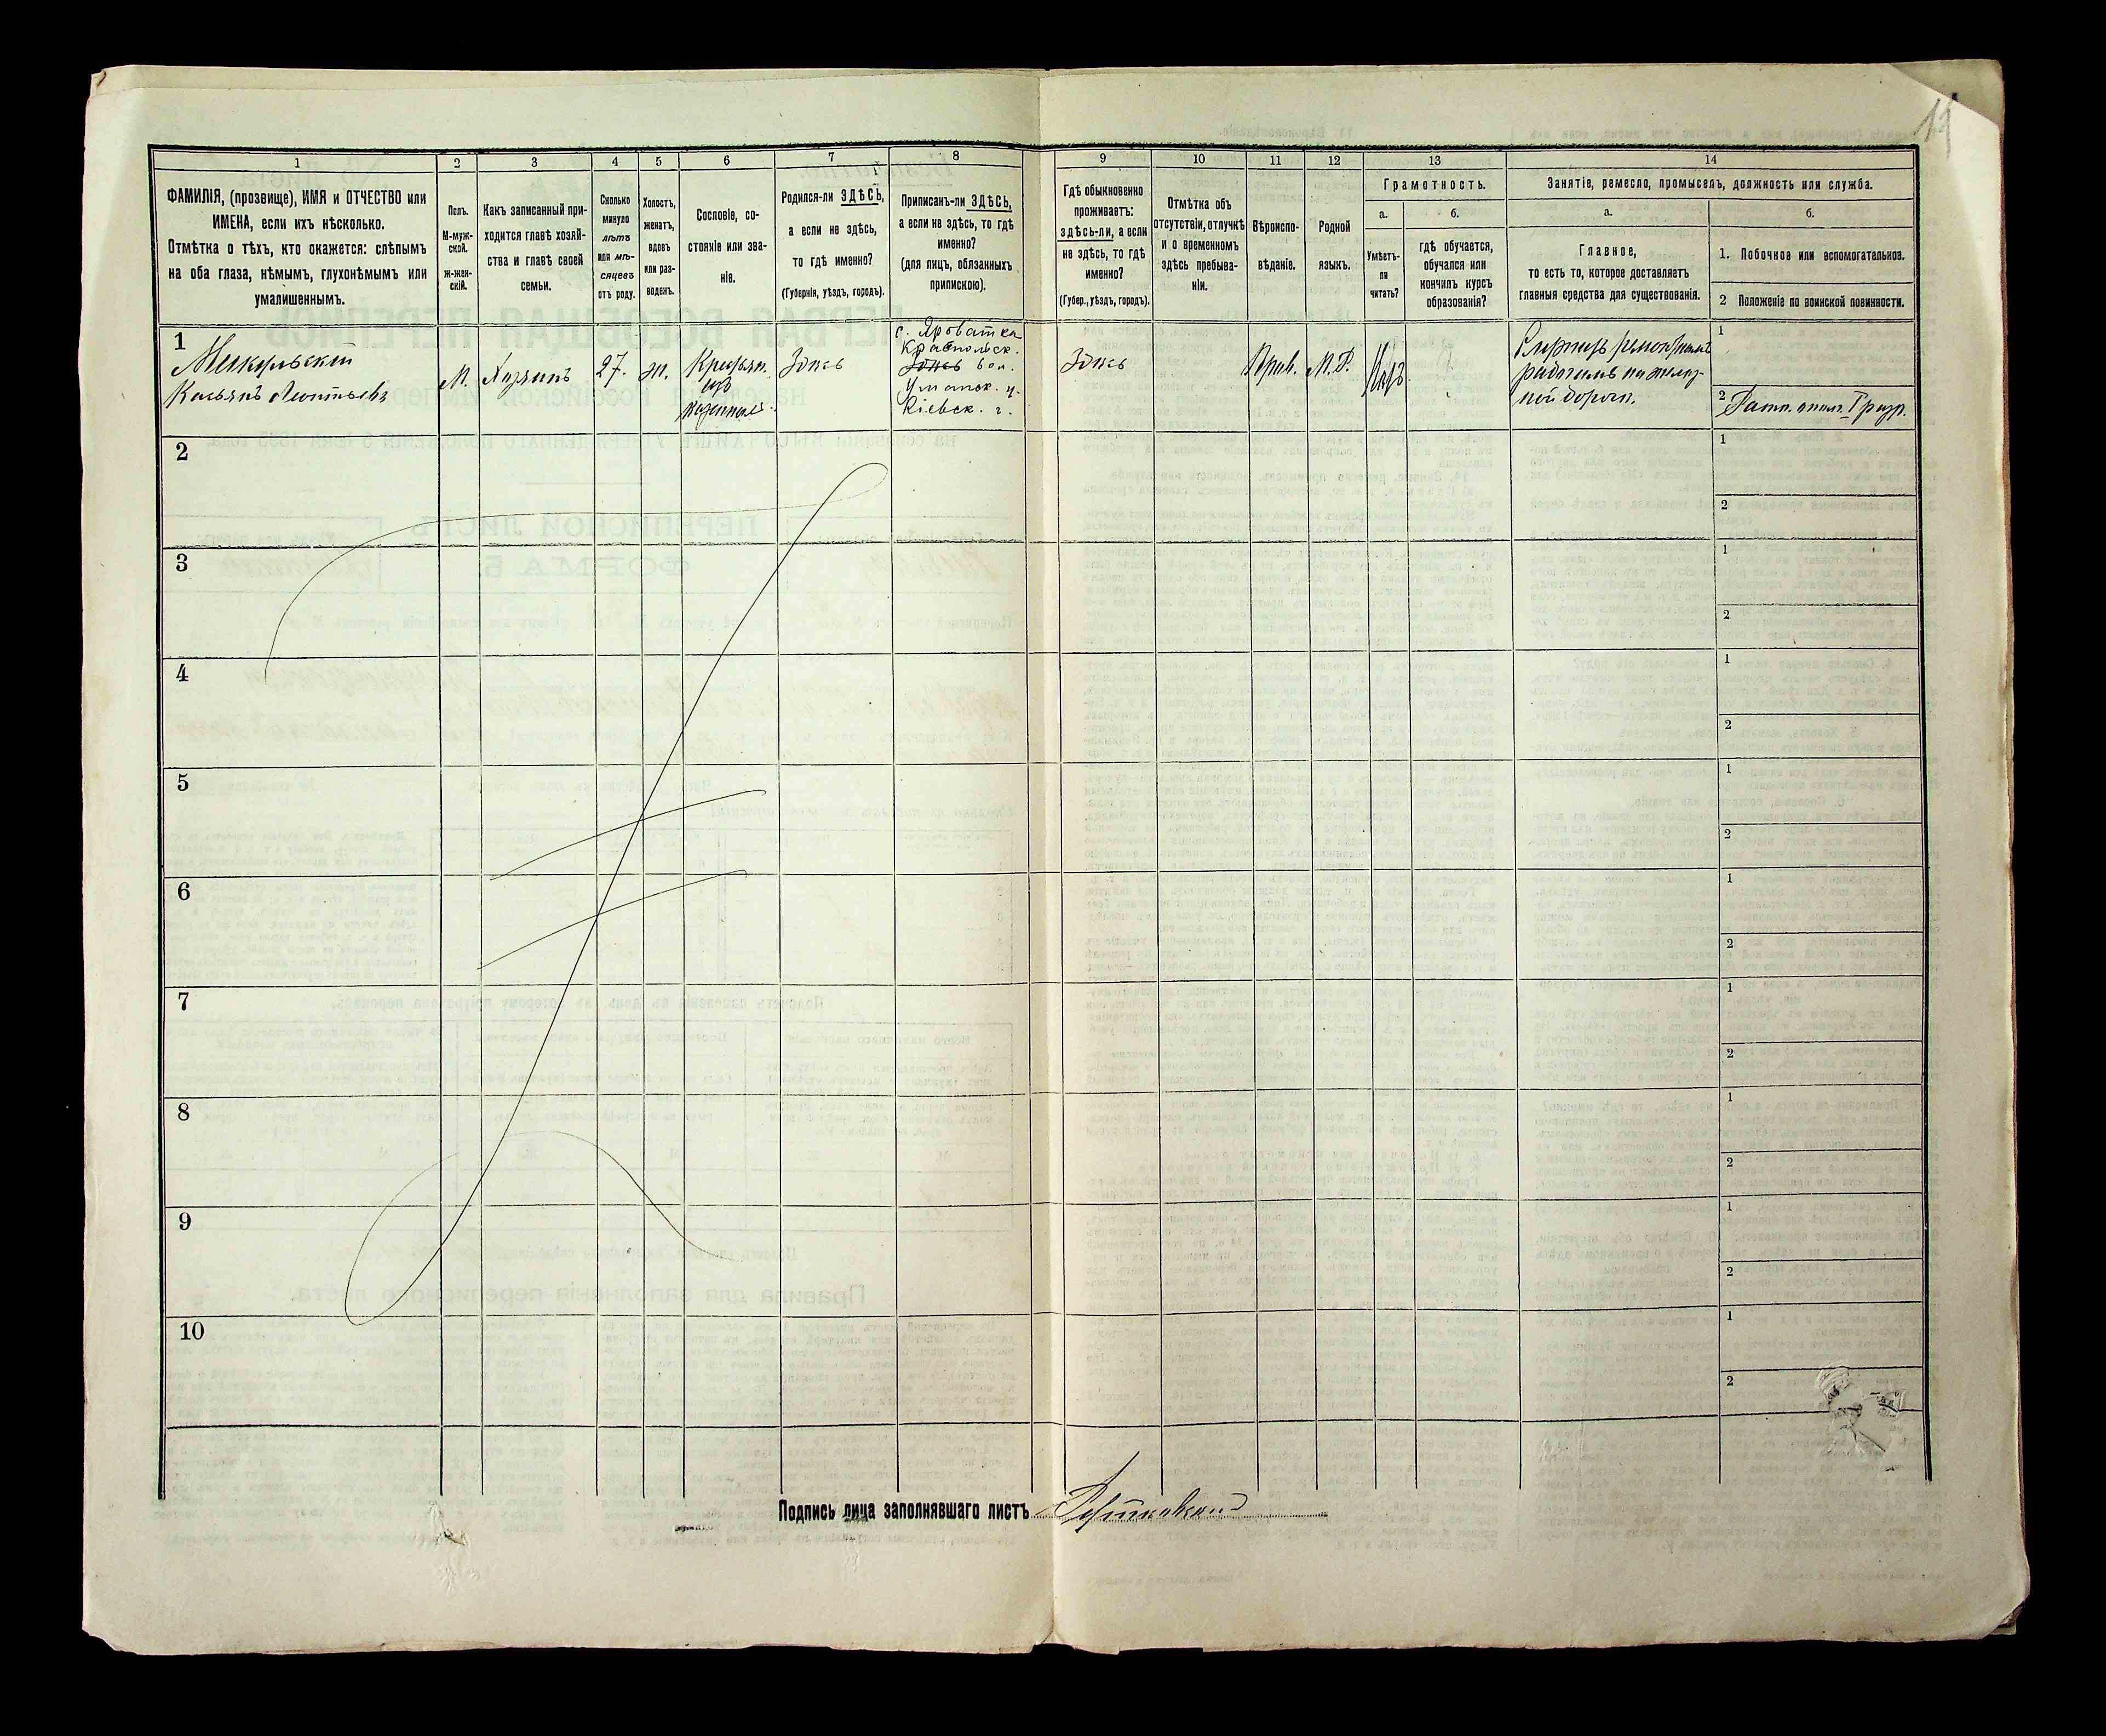 19
1
2
3
4
5
6
7
8
9
10
11
12
13
14
ФАМИЛІЯ, (прозвище), ИМЯ и ОТЧЕСТВО или
ИМЕНА, если ихъ нѣсколько.
Отмѣтка о тѣхъ, кто окажется: слѣпымъ
на оба глаза, нѣмымъ, глухонѣмымъ или
умалишеннымъ.
Полъ.
М-муж-
ской.
Ж-жен-
скій.
Какъ записанный при-
ходится главѣ хозяй-
ства и главѣ своей
семьи.
Сколько
минуло
лѣтъ
или мѣ-
сяцевъ
отъ роду.
Холостъ,
женатъ,
вдовъ
или раз-
веденъ.
Сословіе, со-
стояніе или зва-
ніе.
Родился-ли ЗДѢСЬ,
а если не здѣсь,
то гдѣ именно?
(Губернія, уѣздъ, городъ).
Приписанъ-ли ЗДѢСЬ,
а если не здѣсь, то гдѣ
именно?
(для лицъ, обязанныхъ
припискою).
Гдѣ обыкновенно
проживаетъ:
здѣсь-ли, а если
не здѣсь, то гдѣ
именно?
(Губер., уѣздъ, городъ).
Отмѣтка объ
отсутствіи, отлучкѣ
и о временномъ
здѣсь пребыва-
ніи.
Вѣроиспо-
вѣданіе.
Родной
языкъ.
Грамотность.
а.
Умѣетъ-
ли
читать?
б.
гдѣ обучается,
обучался или
кончилъ курсъ
образованія?
Занятіе, ремесло, промыселъ, должность или служба.
а.
Главное,
то есть то, которое доставляетъ
главныя средства для существованія.
б.
1. Побочное или вспомогательное.
2 Положеніе по воинской повинности.
1
Касьянъ Леонтьевъ
М.
Хозяинъ
27.
ж.
Крестьян.
изъ
Здѣсь
с. Яроватка
Краснопольск.
Здѣсь вол.
Уманск. у.
Кіевск. г.
Здѣсь
Прав.
М.Р.
рабочимъ на желѣз-
ной дорогѣ.
1
2 Ратн. опол. I разр.
2
1
2
3
1
2
4
1
2
5
1
2
6
1
2
7
1
2
8
1
2
9
1
2
10
1
2
Подпись лица заполнявшаго листъ